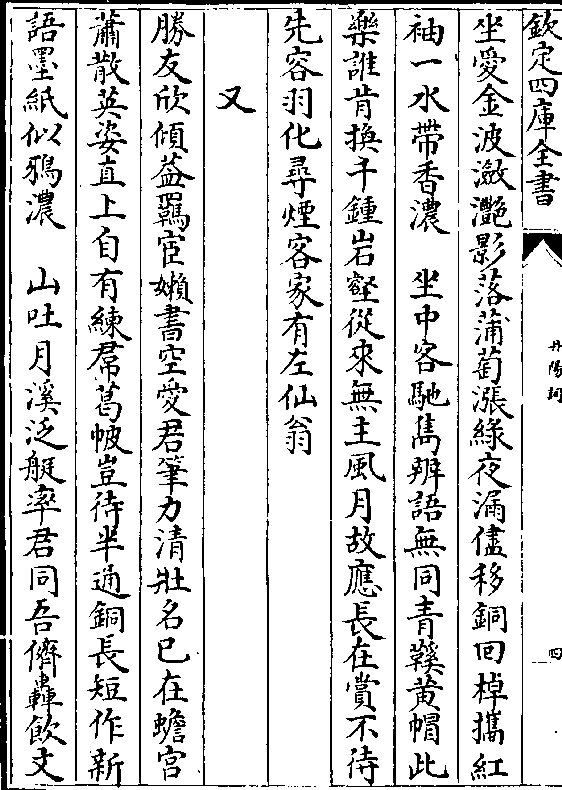 欽定四庫全書
丹陽詞
四
坐愛金波瀲灩影落蒲萄漲綠夜漏儘移銅回棹攜紅
袖一水帶香濃　坐中客馳雋辨語無同青鞵黃帽此
樂誰肯換千鍾岩壑從來無主風月故應長在賞不待
先容羽化尋煙客家有左仙翁
又
勝友欣傾葢羈宦嬾書空愛君筆力清壯名已在蟾宮
蕭散英姿直上自有練帬葛帔豈待半通銅長短作新
語墨紙似鴉濃　山吐月溪泛艇率君同吾儕轟飲文